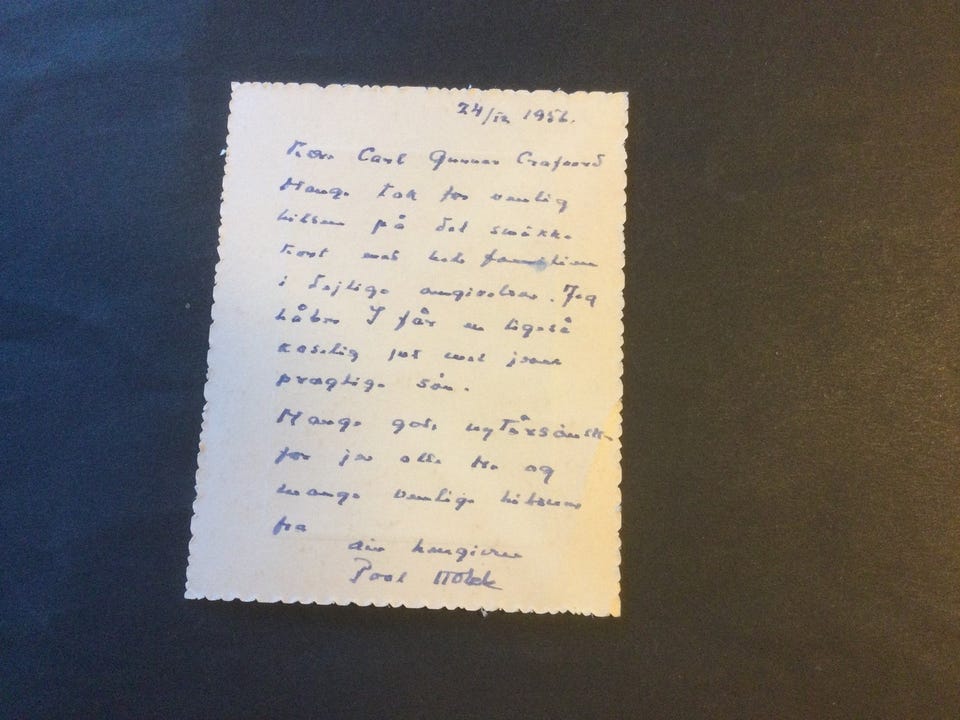 24/12 1956.
Kære Carl Gunnar Crafoord
Mange tak for venlig
hilsen på det smukke
kort med hele familien
i dejlige omgivelser. Jeg
håber I får en ligeså
koselig jul med jeres
prægtige søn.
Mange gode nytårsønsker
for jer alle tre og
mange venlige hilsener
fra
din hengivne
Poul